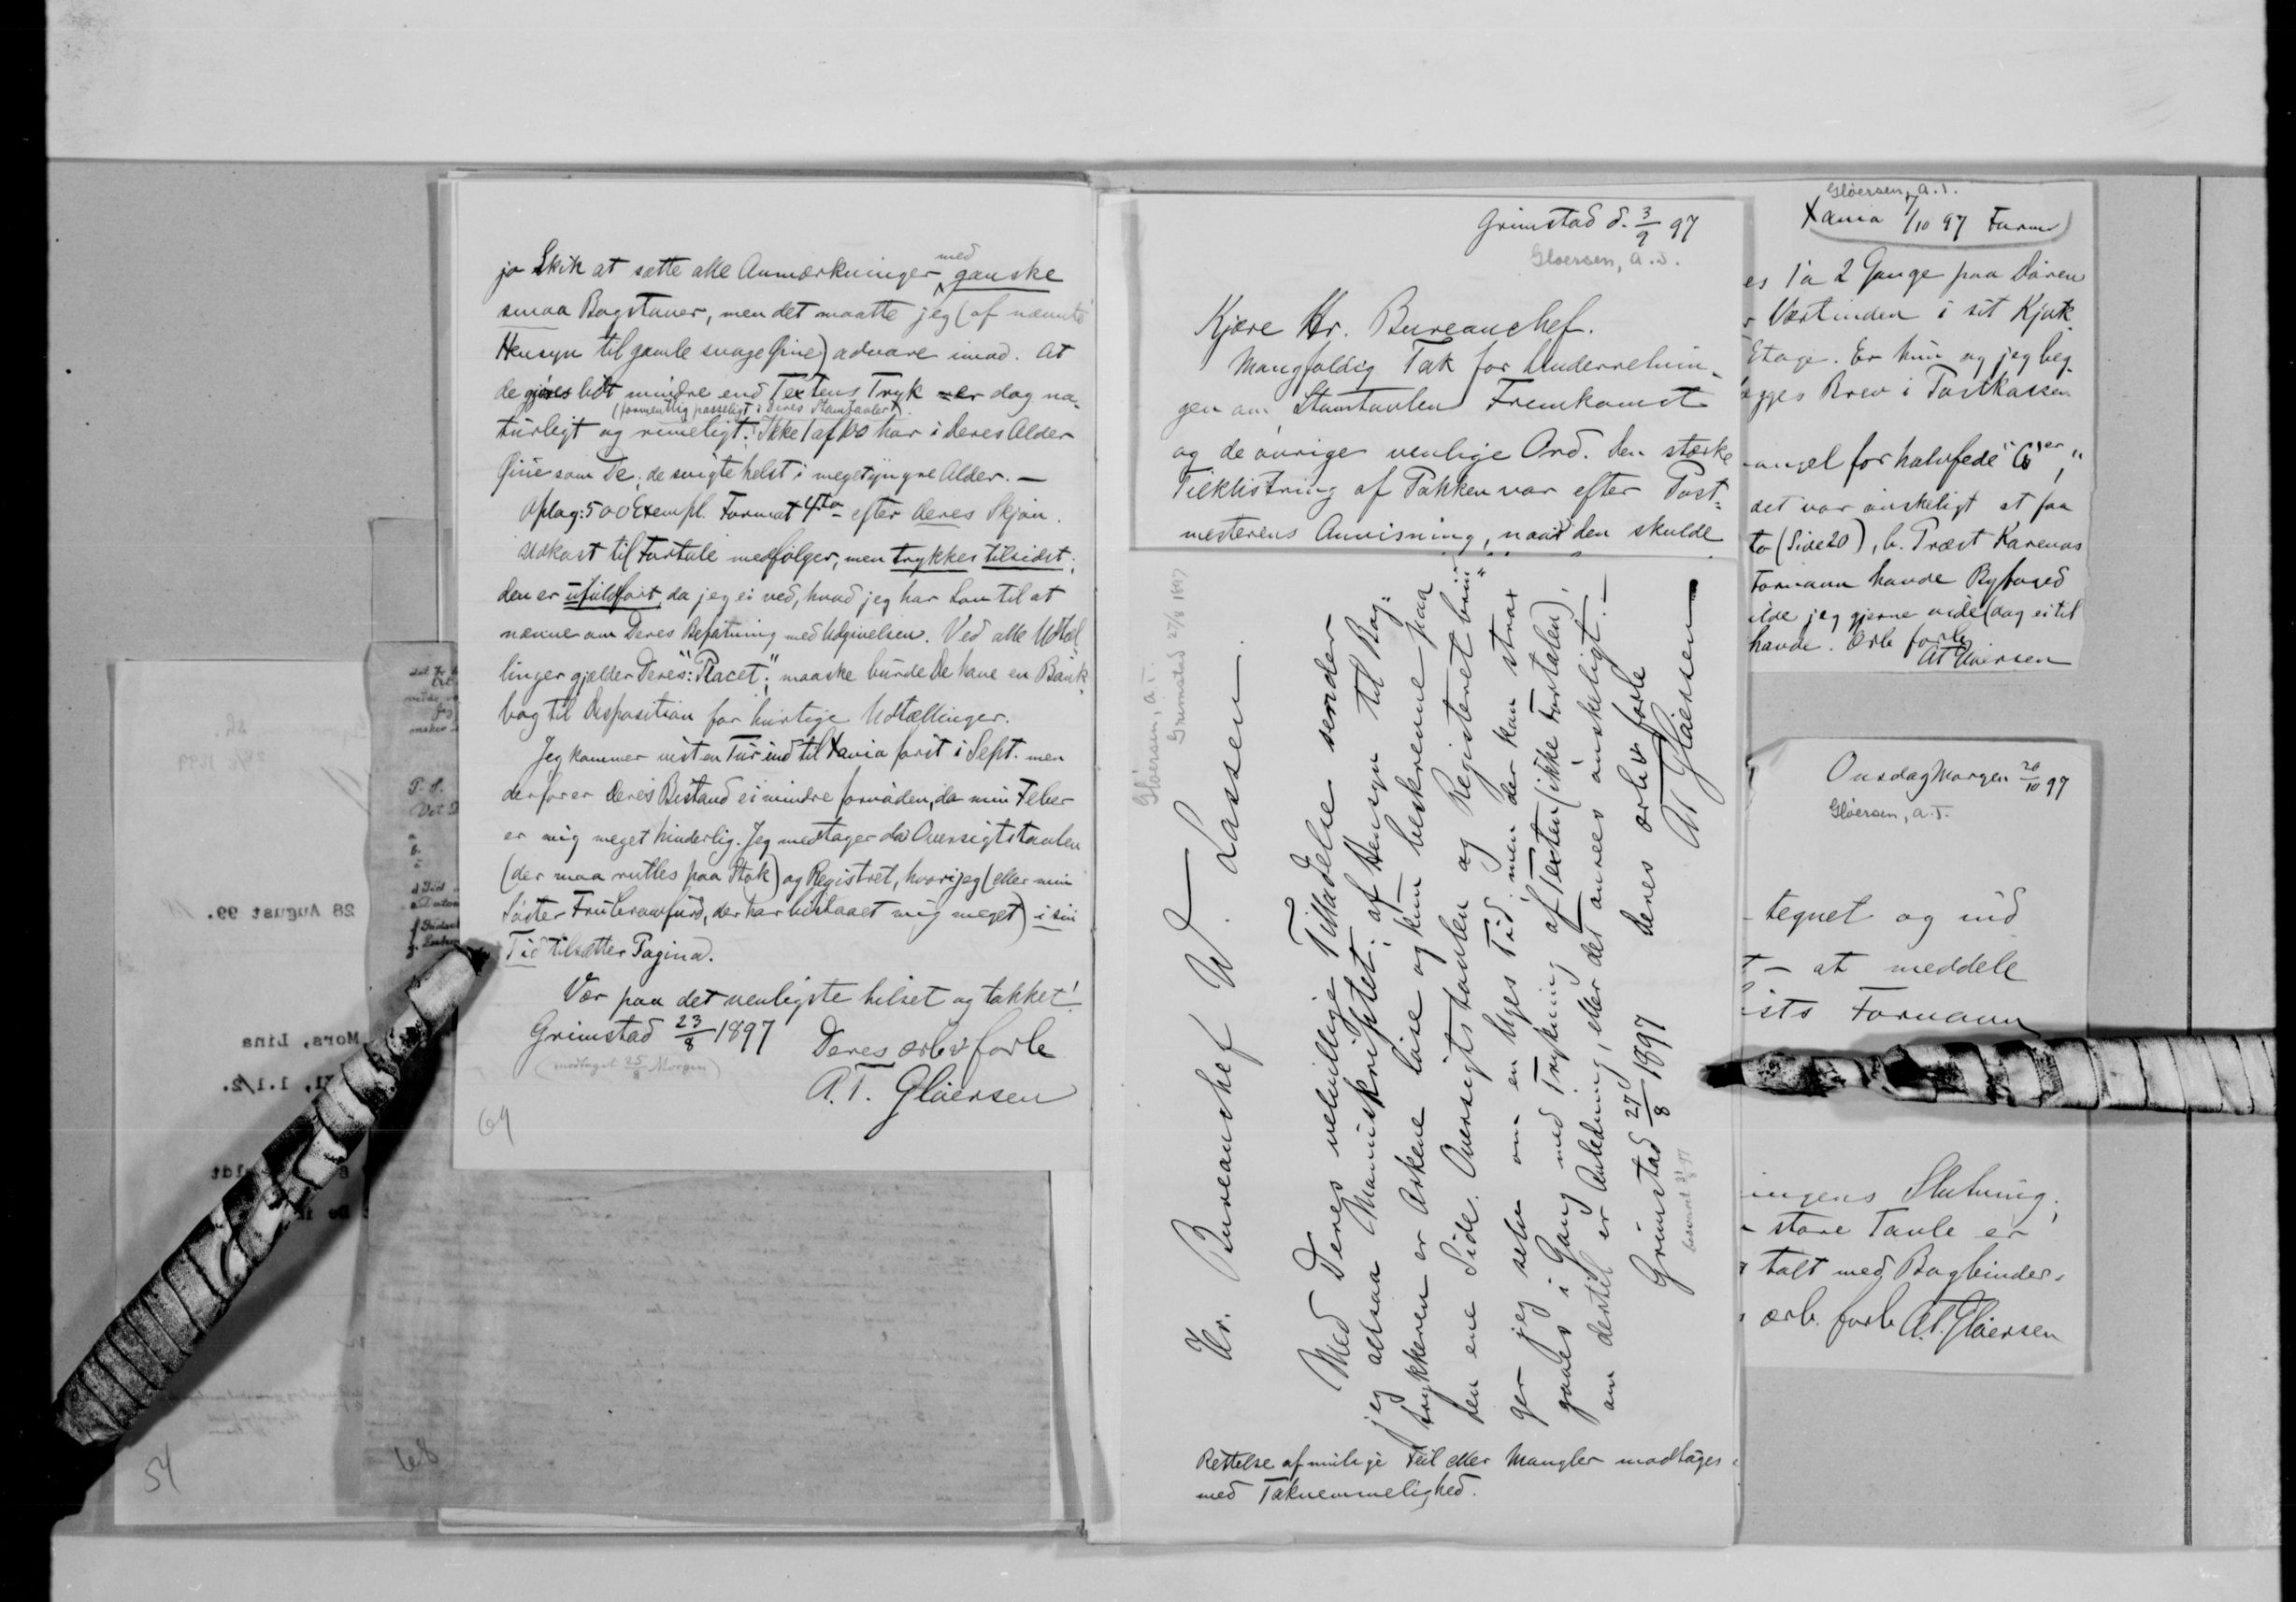 jo Skik at sætte alle Anmærkninger med ganske
smaa Bogstaver, men det maatte jeg (af nævnte
Hensyn til gamle svage Øine) advare imod. At
de gjøres lidt mindre end Textens Tryk er dog na-
(formentlig passeligt i Deres Stamtavler)
turligt og rimeligt. Ikke 1 af 100 har i Deres Alder
Øine som De; de svigte helst i meget yngre Alder. —
Oplag: 500 Exempl. Format 4to efter Deres Skjøn.
Udkast til Fortale medfølger, men trykkes tilsidst;
den er ufuldført, da jeg ei ved, hvad jeg har Lov til at
nævne om Deres Befatning med Udgivelsen. Ved alle Udtæl-
linger gjælder Deres: "Placet"; maaske burde De have en Bank-
bog til Disposition for hurtige Udtællinger.
Jeg kommer vist en Tur ind til Xania først i Sept. men
derfor er Deres Bistand ei mindre fornøden, da min Feber
er mig meget hinderlig. Jeg medtager da Oversigtstavlen
(der maa rulles paa Stok) og Registret, hvori jeg (eller min
Søster Fru Crawfurd, der har bistaaet mig meget) i sin
Tid tilsætter Pagina.
Vær paa det venligste hilset og takket!
Grimstad 23/8 1897
Deres ærb. forb.
(modtaget 25/8 Morgen)
A. T. Gløersen
69
54
68
28 August 99.
Mors, Lina
1.1/2.
Grimstad d. 3/9 97
Gløersen, A. T.
Kjære Hr. Bureauchef.
Mangfoldig Tak for Underretnin-
gen om Stamtavlens Fremkomst
og de øvrige venlige Ord. Den stærke
Tilklistring af Pakken var efter Post-
mesterens Anvisning, naar den skulde
Gløersen, A. T.
Grimstad 27/8 1897
Hr. Bureauchef W. Lassen.
Med Deres velvillige Tilladelse sender
jeg altsaa Manuskriptet; af Hensyn til Bog-
trykkeren er Arkene løse og kun beskrevne paa
den ene Side. Oversigtstavlen og Registeret brin-
ger jeg selv om en Uges Tid; men der kan strax
gaaes i Gang med Trykning af Texten (ikke Fortalen),
om dertil er Anledning, eller det ansees ønskeligt. —
Grimstad 27/8 1897
Deres ærb. forb.
A. T. Gløersen
besvaret 31/8 97
Rettelse af mulige Feil eller Mangler modtages
med Taknemmelighed.
Gløersen, A. T.
Xania 1/10 97 Form
es 1 à 2 Gange paa Døren
Værtinden i sit Kjøk-
Etage. Er hun og jeg beg-
ægges Brev i Postkassen
angel for halvfede "G'er",
det var ønskeligt at faa
to (Side 20), b. Præst
Formann havde Byfoged
ilde jeg gjerne vide (dog ei til
havde. Ærb. forb.
A T Gløersen
Onsdag Morgen 20/10 97
Gløersen, A. T.
tegnet og ind
— at meddele
ists Formann
ingens Slutning;
store Tavle er
talt med Bogbinder-
ærb. forb. A. T. Gløersen